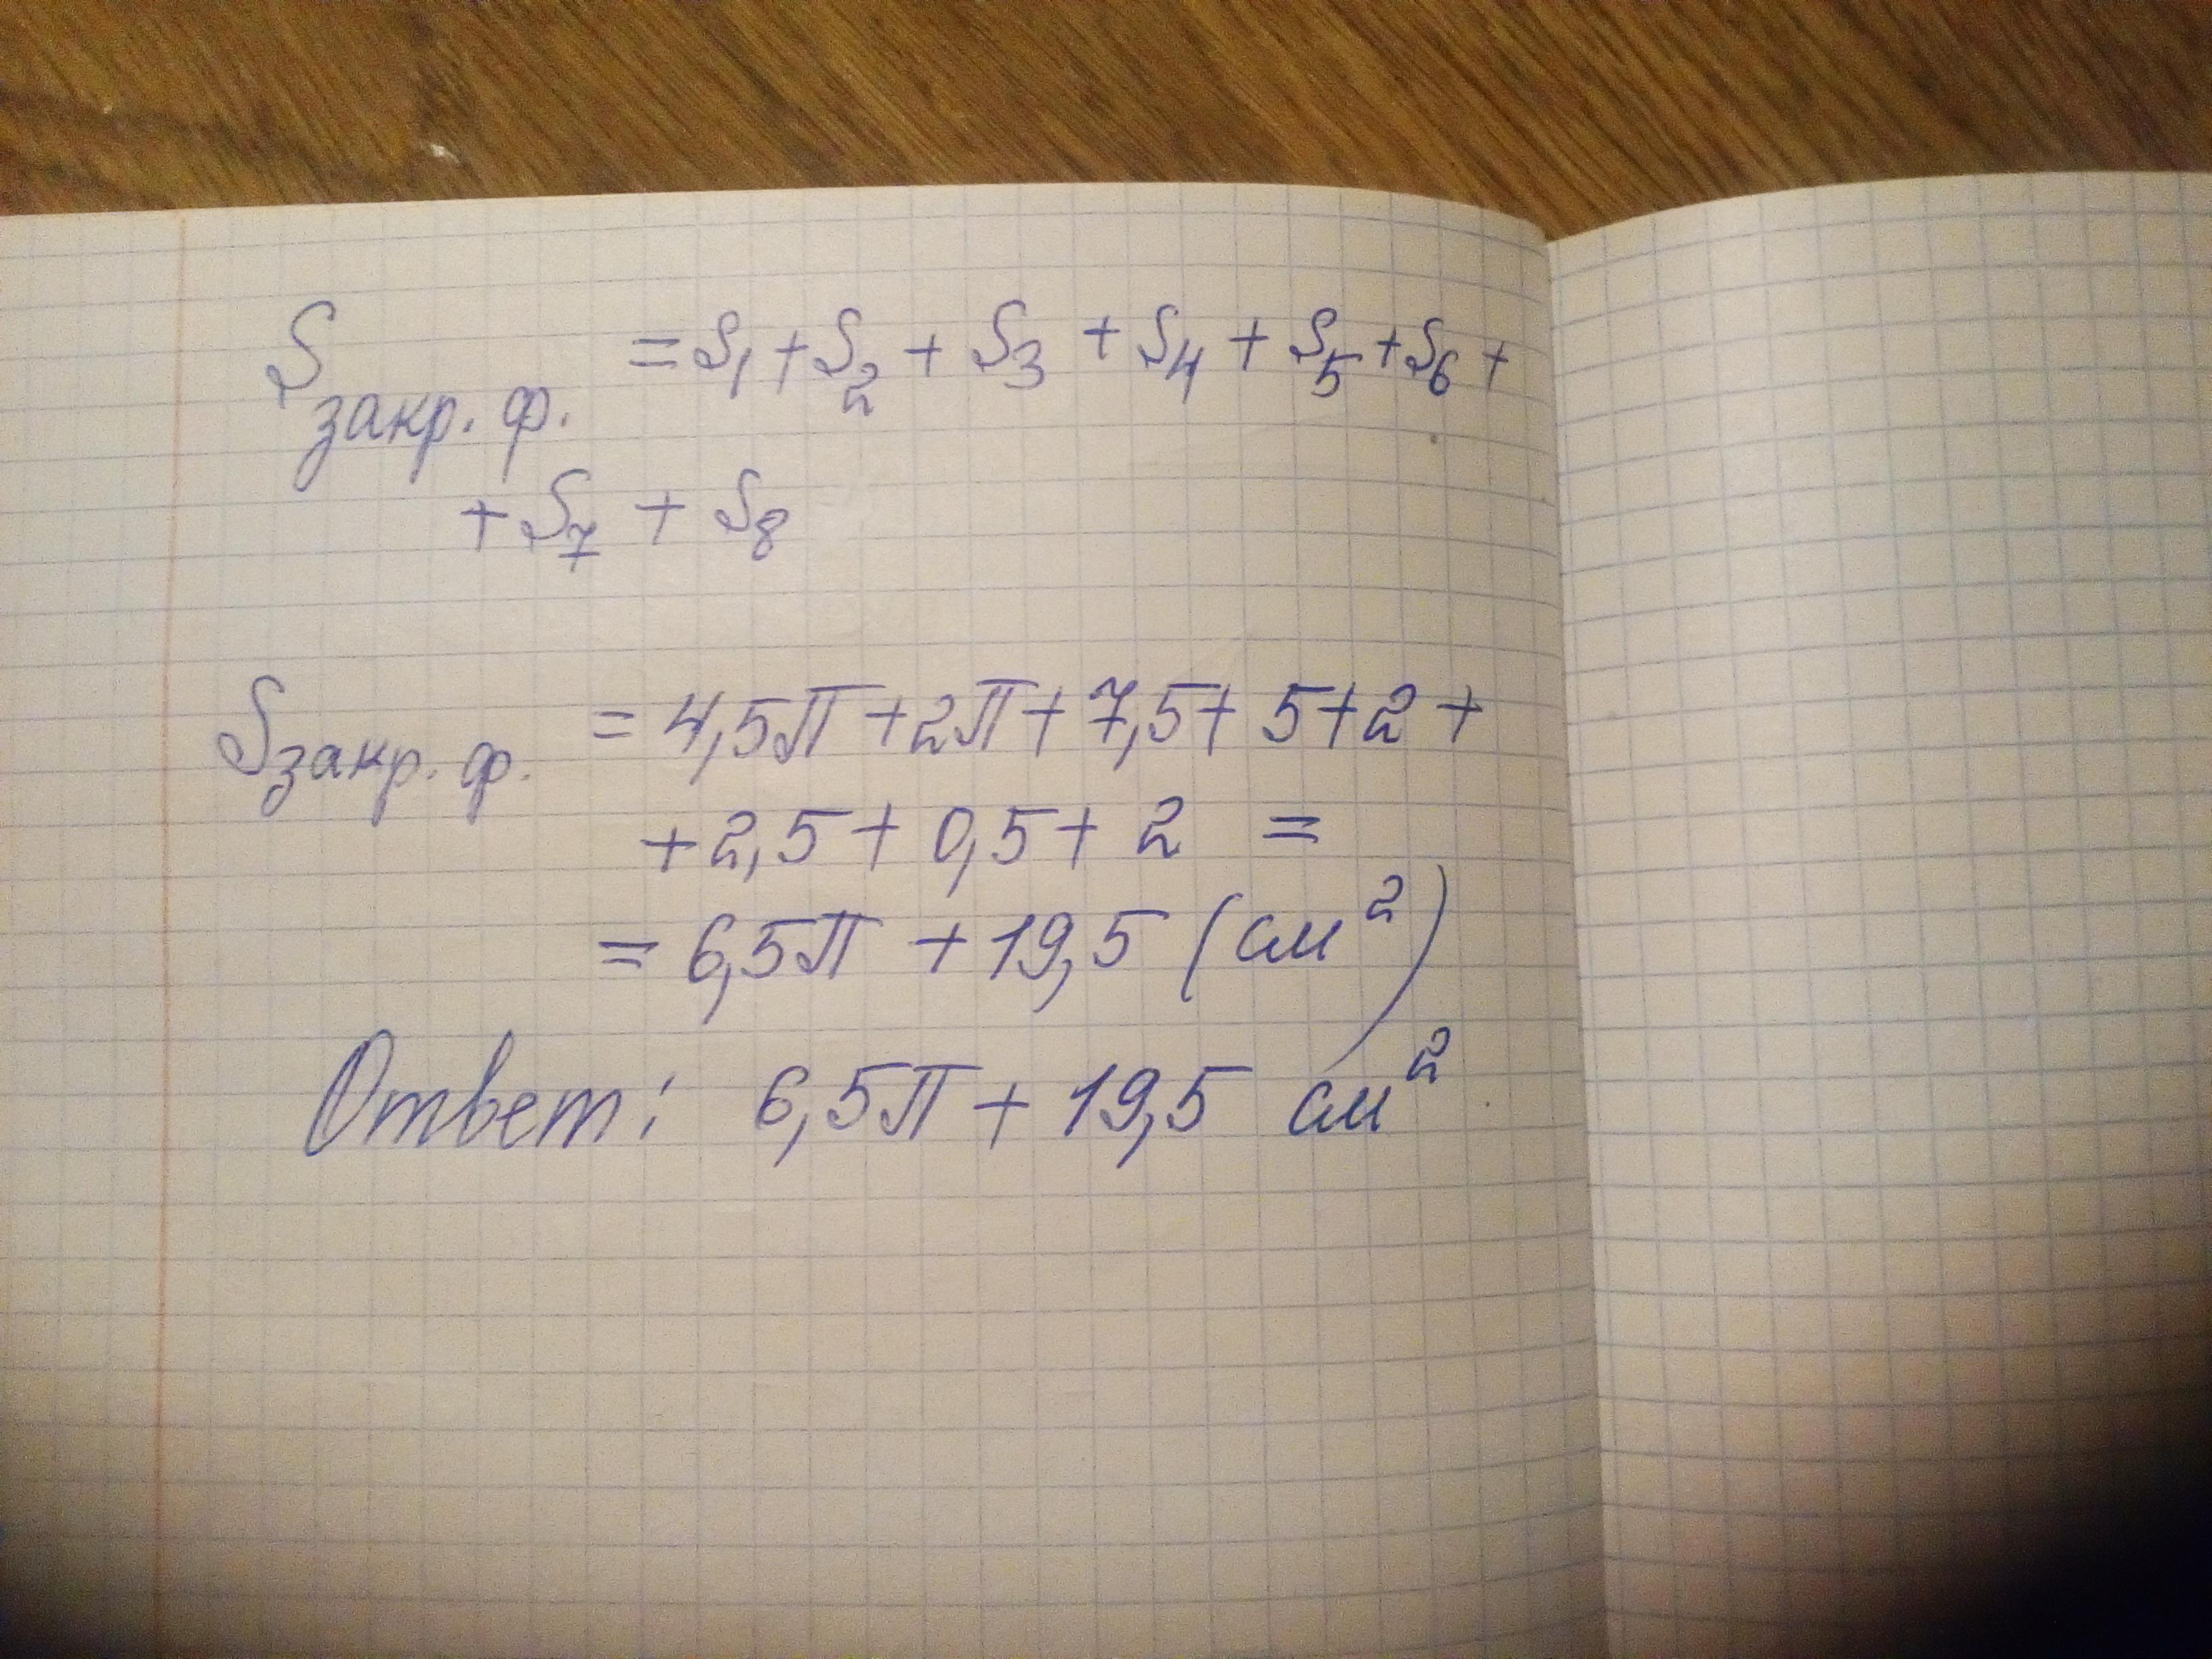 S закр. ф. = S₁ + S₂ + S₃ + S₄ + S₅ + S₆ +
+ S₇ + S₈
S закр. ф. = 4,5π + 2π + 7,5 + 5 + 2 +
+ 2,5 + 0,5 + 2 =
= 6,5π + 19,5 (см²)
Ответ: 6,5π + 19,5 см²